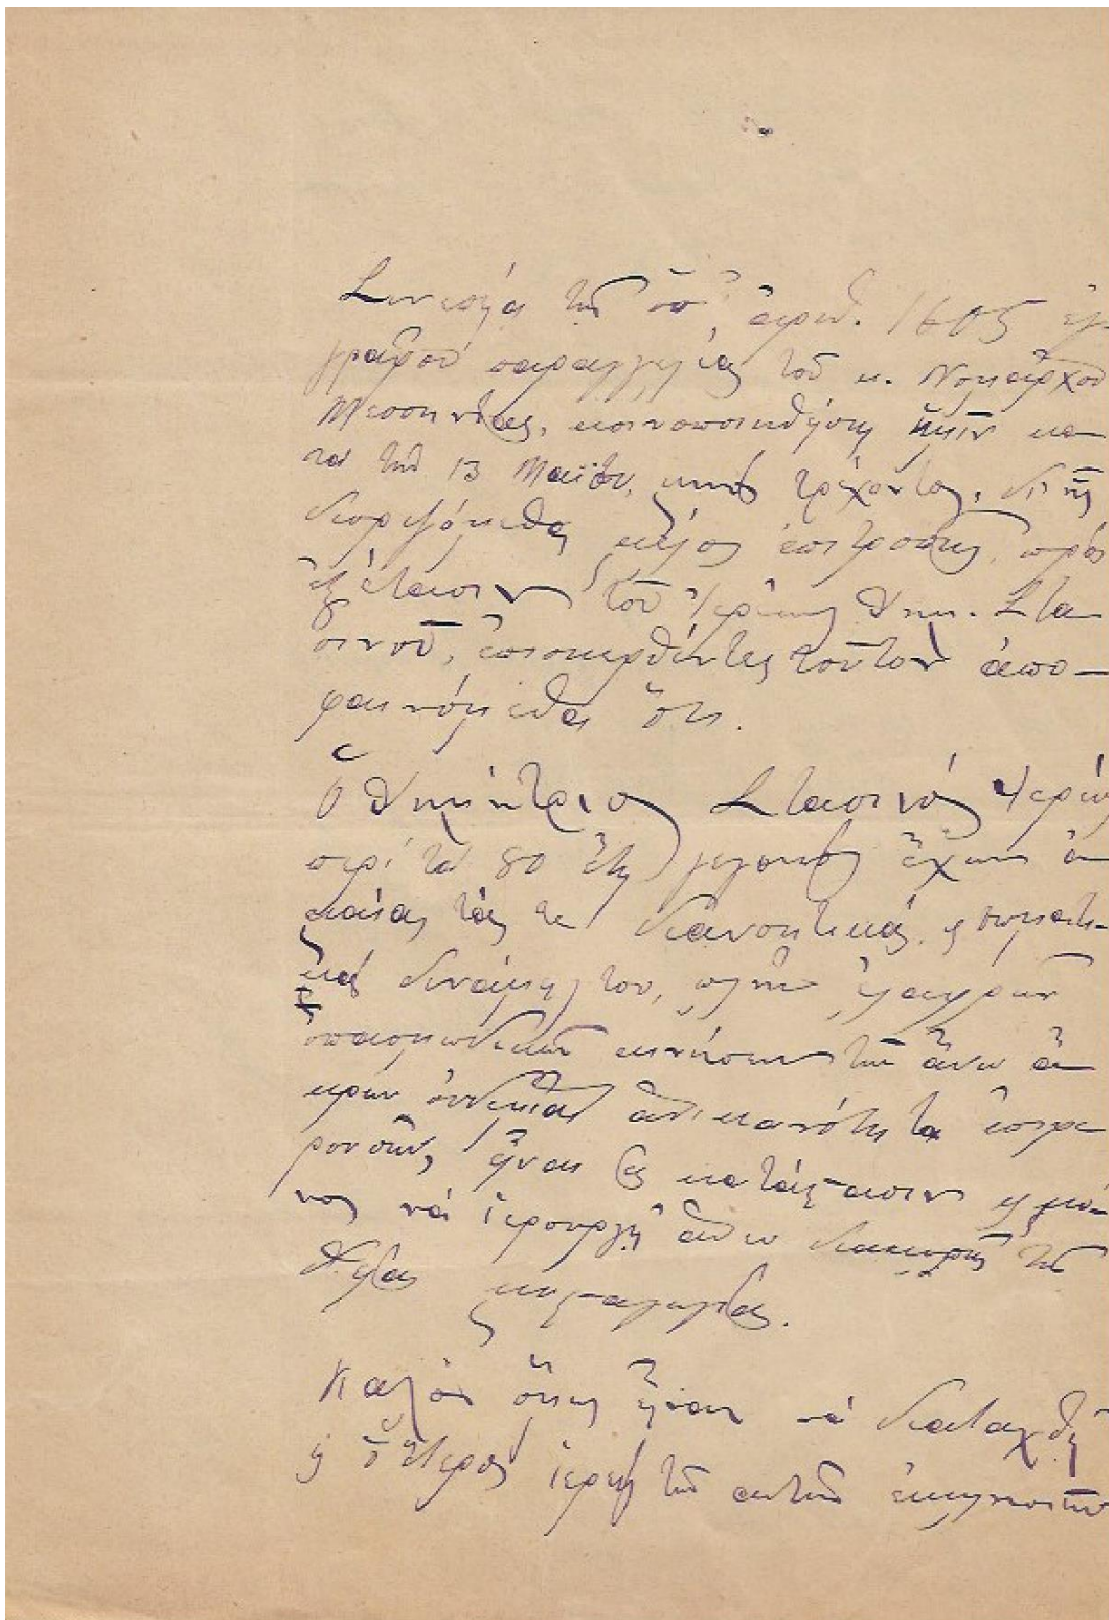 Συνεπείᾳ τῆς ὑπ' ἀριθ. 1605 ἐγ
γράφου παραγγελίας τοῦ κ. Νομάρχου
Μεσσηνίας, κοινοποιηθείσης ἡμῖν κα
τὰ τὴν 13 Μαΐου, μηνὸς τρέχοντος, δι' ἧς
διοριζόμεθα μέλος ἐπιτροπῆς πρὸς
ἐξέτασιν τοῦ Ἱερέως Δημ. Στα
σινοῦ, ἐπισκεφθέντες τοῦτον ἀπο-
φαινόμεθα ὅτι.
Ὁ Δημήτριος Στασινός Ἱερεύς
περὶ τὰ 80 ἔτη γεγονὼς ἔχει ἀ
κμαίας τάς τε διανοητικάς κ σωματι-
κάς δυνάμεις του, πλὴν ἐλαφρῶν
σπασμωδικῶν κινήσεων τῶν ἄνω ἄ
κρων οὐδεμίαν ἀνικανότητα ἐπιφε
ρουσῶν, εἶναι εἰς κατάστασιν κ μό
νος νὰ ἱερουργῇ ἄνευ διακοπῆς τῆς
θείας μυσταγωγίας.
Καλὸν ὅμως εἶναι νὰ διαταχθῇ
κ ὁ ἕτερος ἱερεύς τῆς αὐτῆς ἐκκλησίας